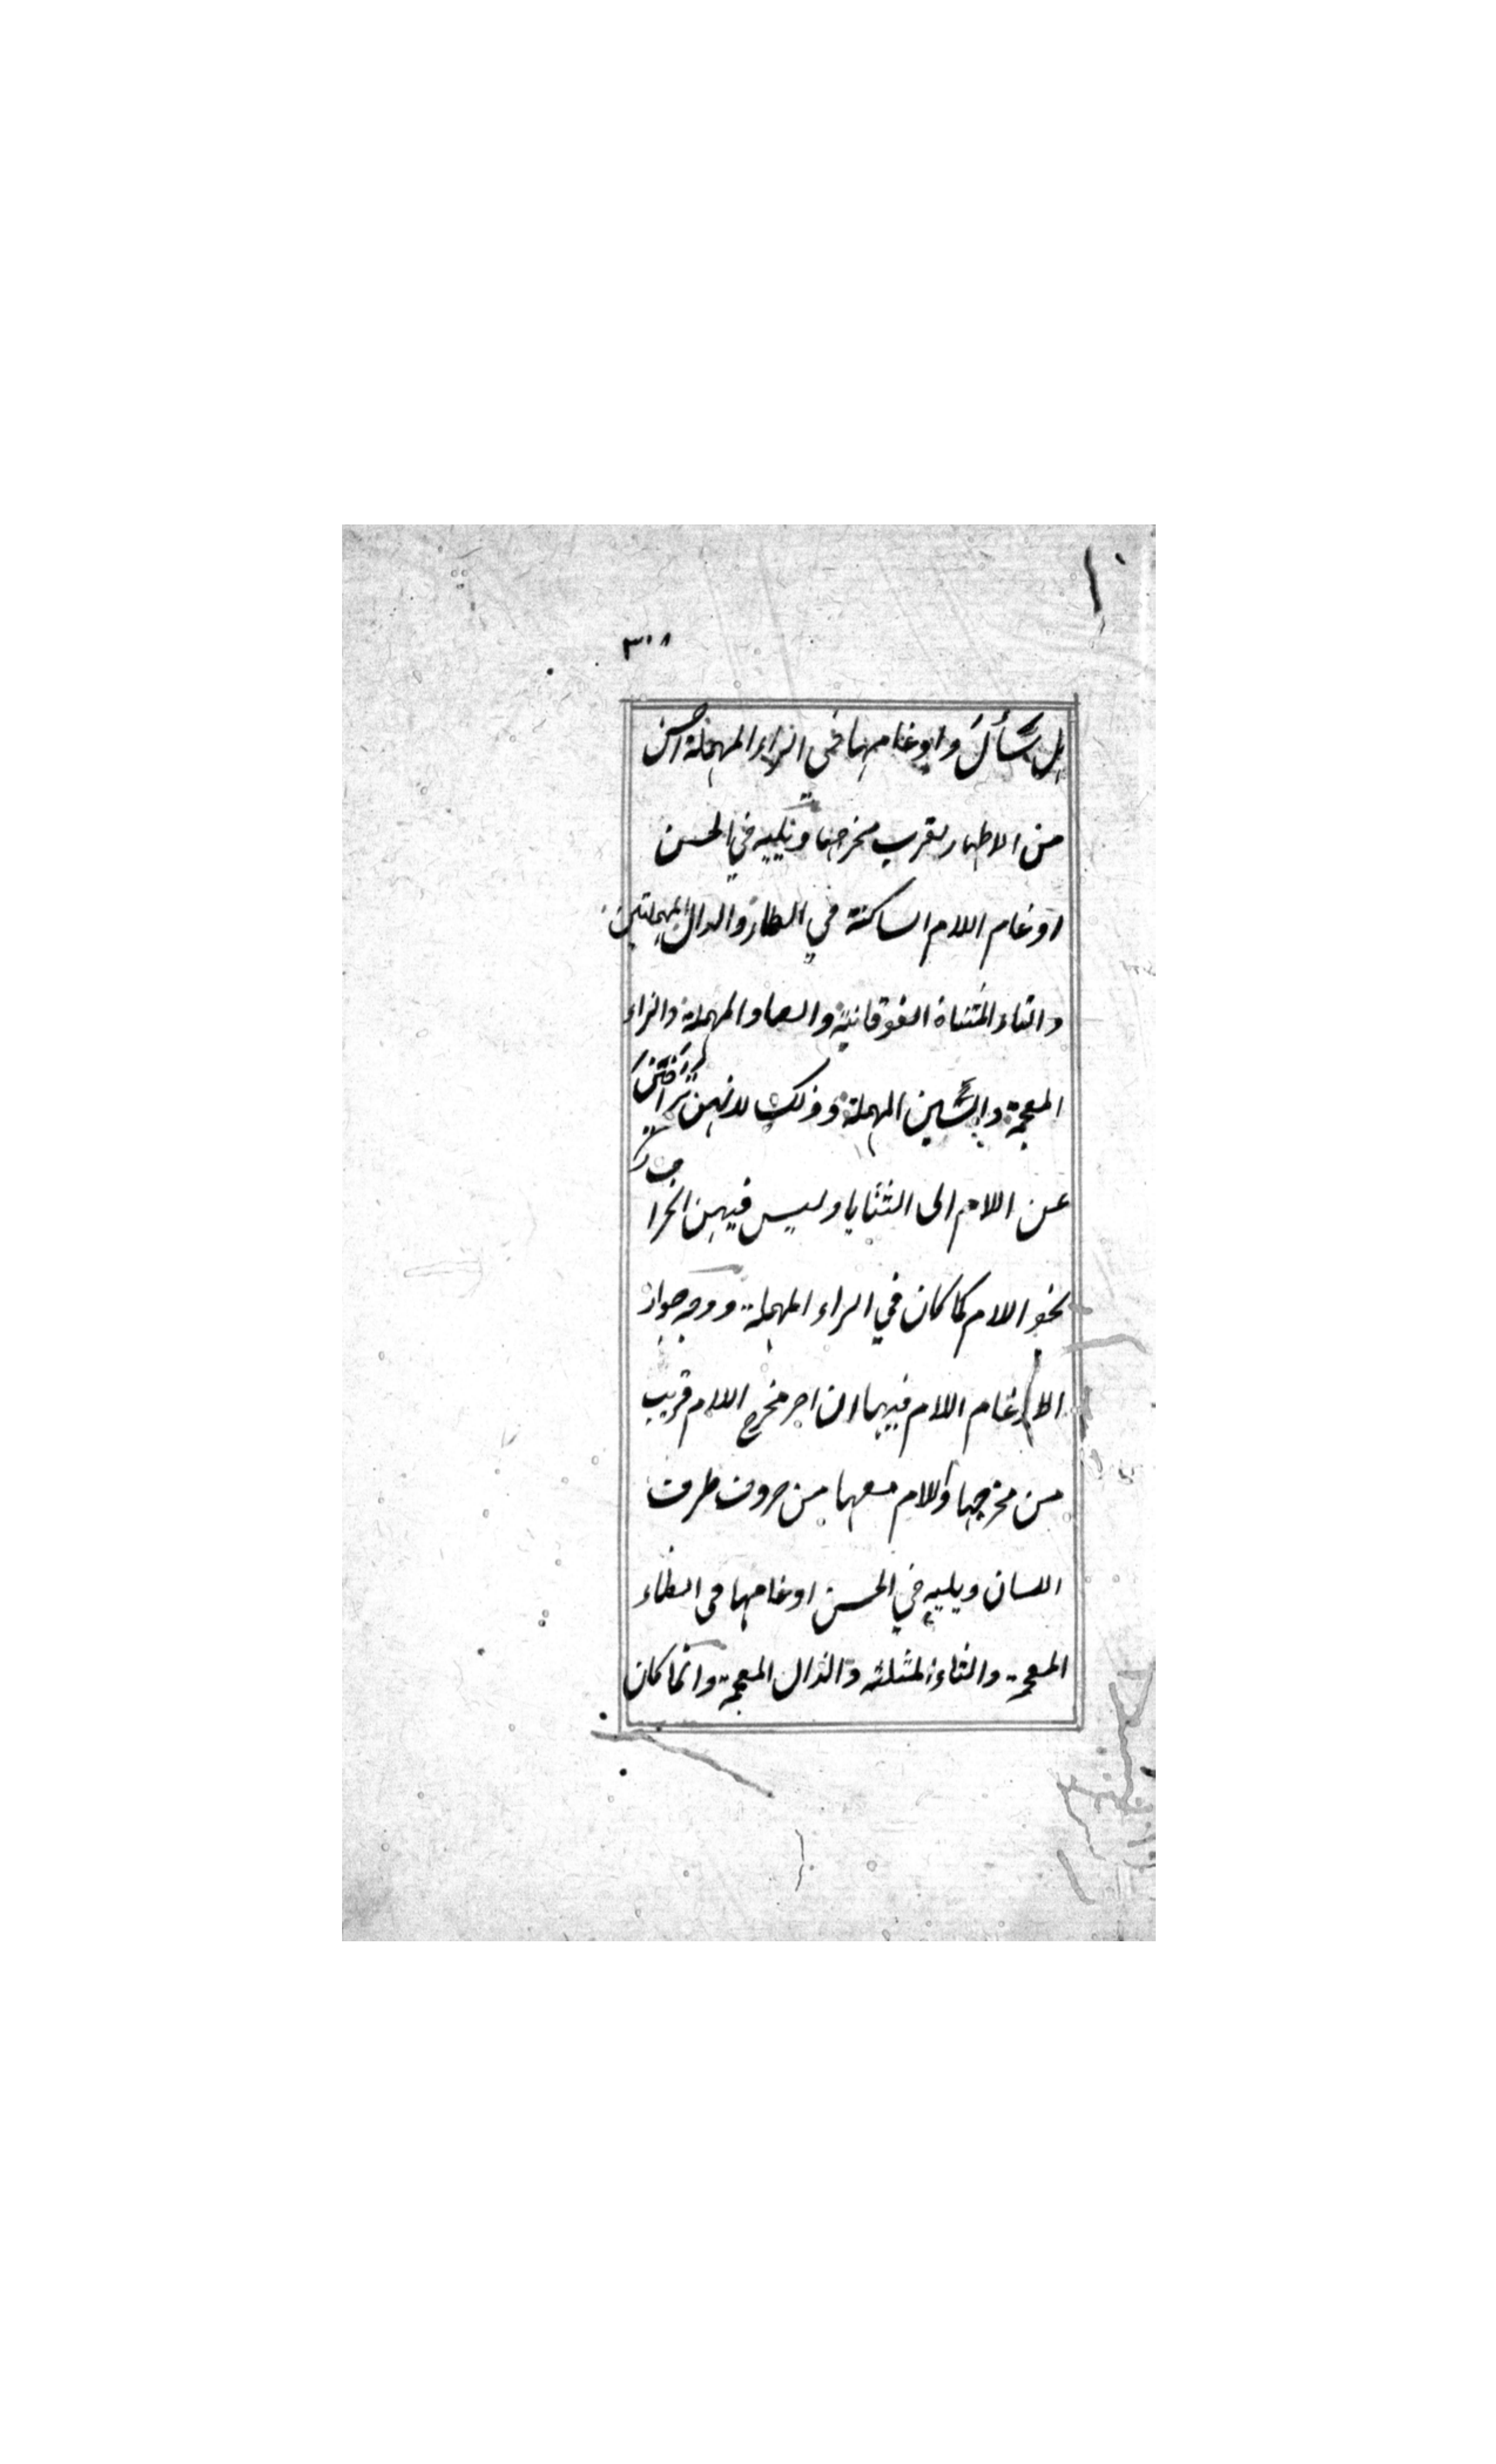 ٣٠٨
بل سأل وادغامها في الراء المهملة احسن
من الاظهار لقرب مخرجها ويليه في الحسن
ادغام اللام الساكنة في الطاء والدال المهملتين
والتاء المثناة الفوقانية والصاد المهملة والزاء
المعجمة والسين المهملة وذلك لانهن تراخين
عن اللام الى الثنايا وليس فيهن انحراف
نحو اللام كما كان في الراء المهملة ووجه جواز
الادغام اللام فيها ان اخر مخرج اللام قريب
من مخرجها واللام معها من حروف طرف
اللسان ويليه في الحسن ادغامها في الظاء
المعجمة والثاء المثلثه والذال المعجمة وانما كان